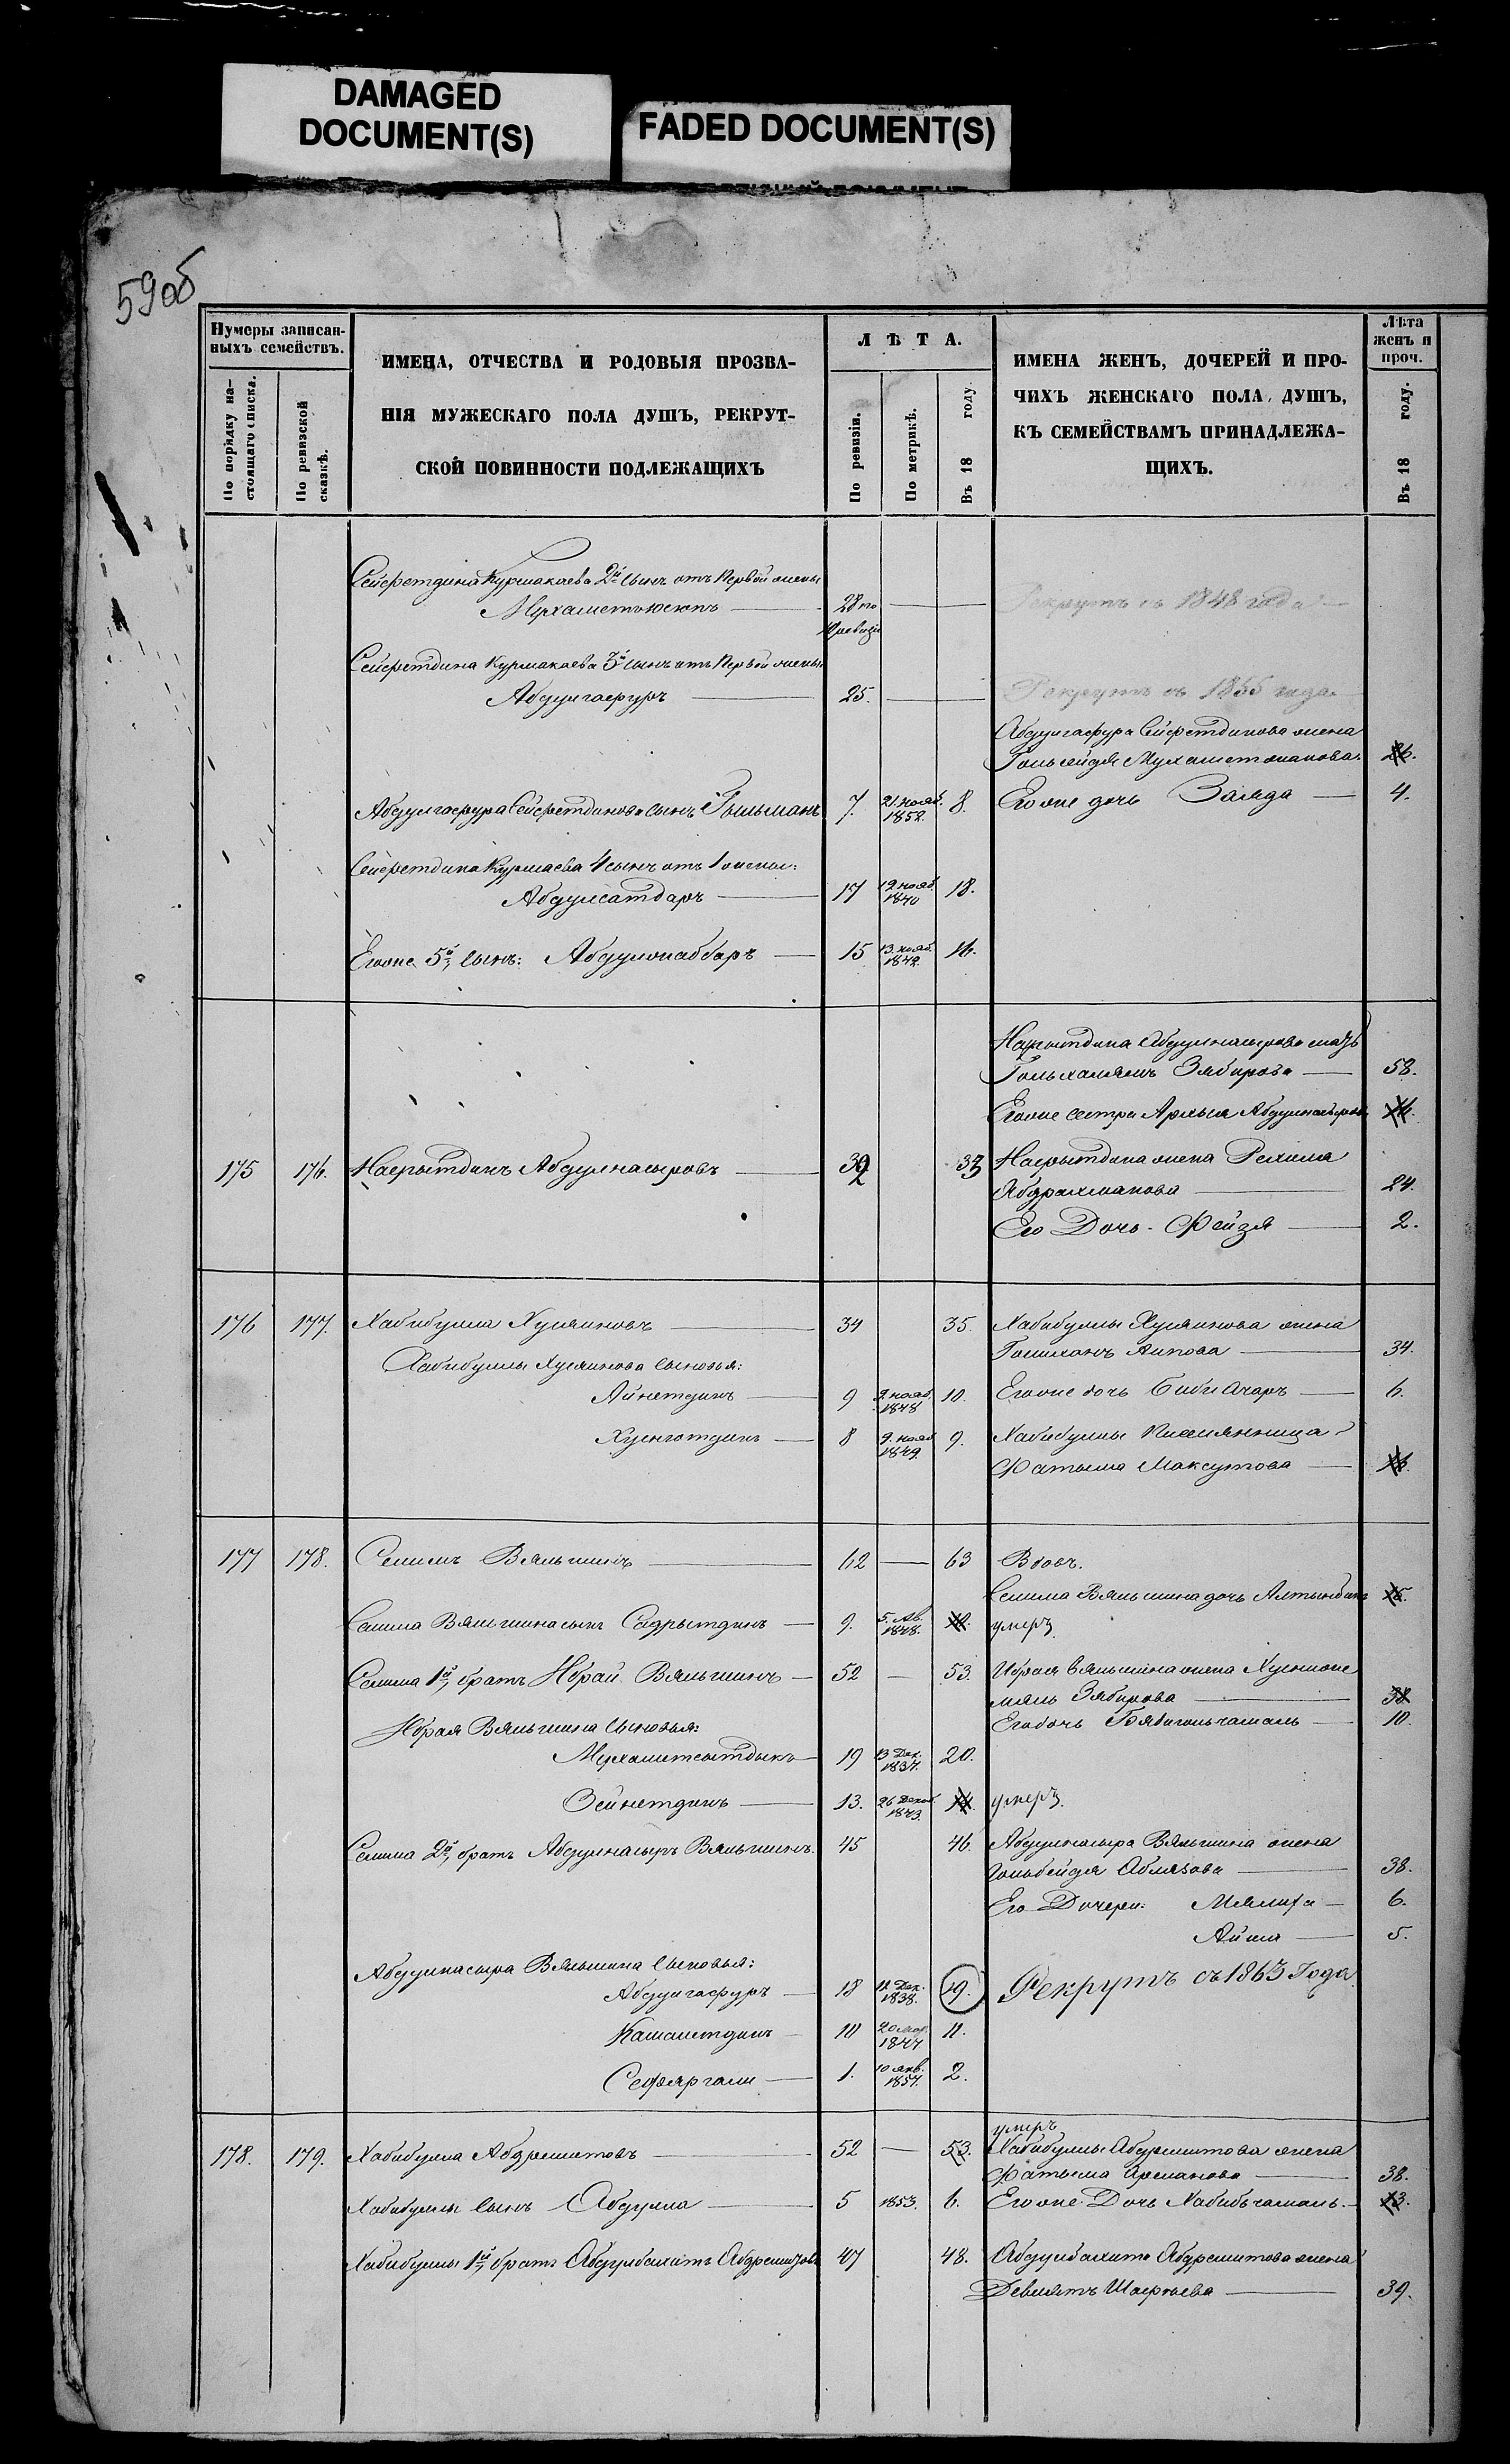 DAMAGED
DOCUMENT(S)
FADED DOCUMENT(S)
59об
Нумеры записан-
ныхъ семействъ.
По порядку на-
стоящаго списка.
По ревизской
сказкѣ.
ИМЕНА, ОТЧЕСТВА И РОДОВЫЯ ПРОЗВА-
НІЯ МУЖЕСКАГО ПОЛА ДУШЪ, РЕКРУТ-
СКОЙ ПОВИННОСТИ ПОДЛЕЖАЩИХЪ
ЛѢТА.
По ревизіи.
По метрикѣ.
Въ 18 году.
ИМЕНА ЖЕНЪ, ДОЧЕРЕЙ И ПРО-
ЧИХЪ ЖЕНСКАГО ПОЛА ДУШЪ,
КЪ СЕМЕЙСТВАМЪ ПРИНАДЛЕЖА-
ЩИХЪ.
Лѣта
женъ и
проч.
Въ 18 году.
Сейфетдина Курмакаева 2й сынъ отъ первой жены
Мухаметъюсюпъ 28 по Рекрутъ съ 1848 года
ревизіи
Сейфетдина Курмакаева 3й сынъ отъ первой жены
Абдулгафуръ 25. Рекрутъ съ 1855 года
Абдулгафура Сейфетдинова жена
Гольсейдя Мухаметжанова.
Абдулгафура Сейфетдинова сынъ 7. 21. нояб. 1852. 8. Егоже дочь Заляда 4.
Сейфетдина Курмаева 4 сынъ отъ 1 жены:
Абдулсатдаръ 17 19 нояб. 1840 18.
Егоже 5й сынъ: Абдулжаббаръ 15 13 нояб. 1842. 16.
Насрытдина Абдулнасырова мать
Гольхамямъ Зябирова 58.
Егоже сестра Абдулнасырова
175 176. Насрытдинъ Абдулнасыровъ 32 33 Насрытдина жена Рехима
Абдрахманова 24.
Его Дочь Фейзя 2.
176 177. Хабибулла Хусяиновъ 34 35. Хабибуллы Хусяинова жена
Аипова 34.
Хабибуллы Хусяинова сыновья:
Айнетдинъ 9 2 нояб. 1848 10. Егоже дочь Биби 6.
Хуснютдинъ 8 9. нояб. 1849. 9. Хабибуллы племянница
Фатыма Максутова
177 178. Селимъ Вяльшинъ 62 63 Вдовъ.
Селима Вяльшина дочь Алтынбика
Селима Вяльшина сынъ Садрытдинъ 9. 5. Ав. 1848. умеръ
Селима 1й братъ Ибрай Вяльшинъ 52 53. Ибрая Вяльшина жена
Зябирова 38
Ибрая Вяльшина сыновья: Егодочь 10.
Мухаметсытдыкъ 19 13 Дек. 1837. 20.
Зейнетдинъ 13. 26 Декаб. 1843. 14. умеръ.
Селима 2й братъ Абдулнасыръ Вяльшинъ. 45 46. Абдулнасыра Вяльшина жена
Гольбейдя Аблязова 38.
Его Дочери: Мялика 6.
Айша 5.
Абдулнасыра Вяльшина сыновья:
Абдулгафуръ 18 12 Дек. 1838. 19. Рекрутъ съ 1863 Года
Камалетдинъ 10 20 1847 11.
Сефяргали 1. 10 янв. 1857. 2.
умеръ
178. 179. Хабибулла Абдрешитовъ 52 53. Хабибуллы Абдрешитова жена
Фатыма Арсланова 38.
Хабибуллы сынъ Абдулла 5 1853. 6. Егоже Дочь Хабибъчамаль. 13.
Хабибуллы 1й братъ Абдулбахитъ Абдрешитовъ 47 48. Абдулбахита Абдрешитова жена
Девлятъ Шафѣева 39.